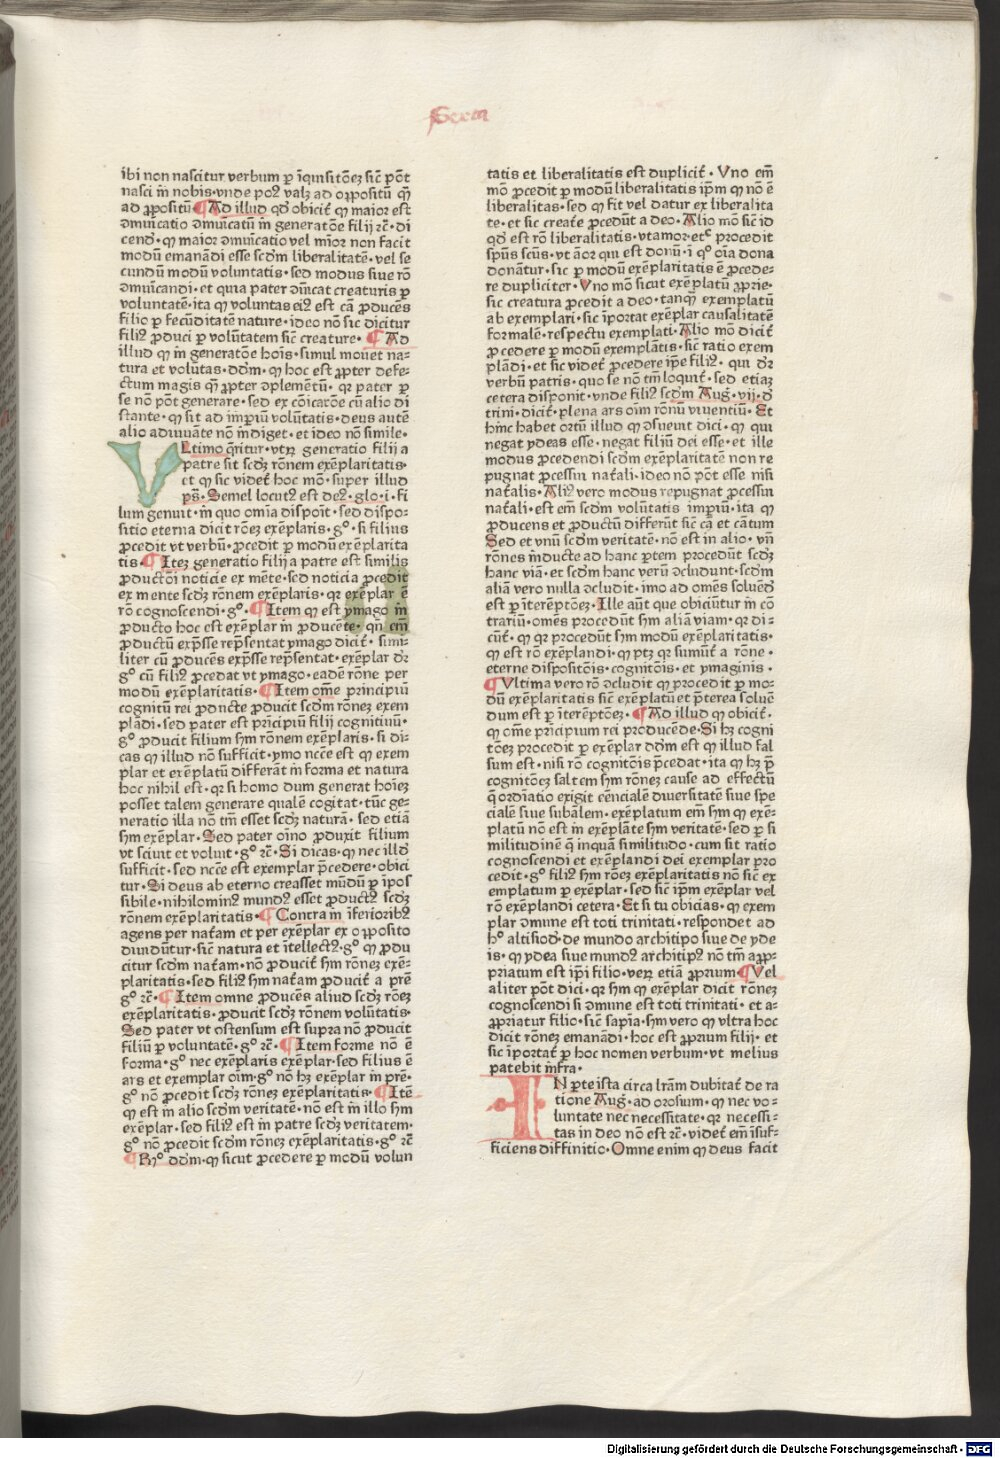 Sexta
ibi non nascitur verbum ꝑ īquisitōeʒ sic̄ pōt
nasci in nobis·vnde poꝰ valʒ ad oꝓpositū qm̄
ad ꝓpositū·¶Ad illud qd̓ obicit̄ qꝫ maior est
ꝯmuīcatio ꝯmuīcatū in generatōe filij ꝛc̄·di
cend̓·qꝫ maior ꝯmuīcatio vel mīor non facit
modū emanādi esse scd̓m liberalitatē·vel se
cundū modū voluntatis·sed modus siue rō
ꝯmuīcandi·et quia pater ꝯmūcat creaturis ꝑ
voluntatē·ita qꝫ voluntas eiꝰ est cā ꝓducēs
filio ꝑ fecūditatē nature·ideo nō sic dicitur
filiꝰ ꝓduci ꝑ volūtatem sic̄ creature·¶Ad
illud qꝫ in generatōe hoīs·simul mouet na-
tura et volūtas·dd̓m·qꝫ hoc est ꝓpter defe-
ctum magis qm̄ ꝓpter ꝯplemētū·qꝛ pater ꝑ
se nō pōt generare·sed ex cōicatōe cū alio di
stante·qꝫ sit ad imꝑiū volūtatis·deus autē
alio adiuuāte nō indiget·et ideo nō simile·
VLtimo q̄ritur·vtꝝ generatio filij a
patre sit scd̓ʒ rōnem exēplaritatis·
et qꝫ sic videt̄ hoc mō·super illud
ps̄·Semel locutꝰ est deꝰ·glo·i·fi
lium genuit·in quo omīa dispoīt·sed dispo-
sitio eterna dicit rōeʒ exēplaris·gº·si filius
ꝓcedit vt verbū·ꝓcedit ꝑ modū exēplarita
tis·¶Iteʒ generatio filij a patre est similis
ꝓductōi noticie ex mēte·sed noticia ꝓcedit
ex mente scd̓ʒ rōnem exēplaris·qꝛ exēplar ē
rō cognoscendi·gº·¶Item qꝫ est ymago in
ꝓducto hoc est exēplar in ꝓducēte·qn̄ em̄
ꝓductū exp̄sse rep̄sentat ymago dicit̄·simi-
liter cū ꝓducēs exp̄sse rep̄sentat·exēplar dr̄
gº cū filiꝰ ꝓcedat vt ymago·eadē rōne per
modū exēplaritatis·¶Item om̄e principiū
cognitū rei ꝓducte ꝓducit scd̓m rōneʒ exem
plādi·sed pater est prīcipiū filij cognitiuū·
gº ꝓducit filium ẜm rōnem exēplaris·si di-
cas qꝫ illud nō sufficit·ymo ncc̄e est qꝫ exem
plar et exēplatū differāt in forma et natura
hoc nihil est·qꝛ si homo dum generat hoīeʒ
posset talem generare qualē cogitat·tūc ge-
neratio illa nō tm̄ esset scd̓ʒ naturā·sed etiā
ẜm exēplar·Sed pater oīno ꝓduxit filium
vt sciuit et voluit·gº ꝛc̄·Si dicas·qꝫ nec illd̓
sufficit·sed ncc̄e est exemplar p̄cedere·obici
tur·Si deus ab eterno creasset mūdū ꝑ īpos
sibile·nihilominꝰ mundꝰ esset ꝓductꝰ scd̓ʒ
rōnem exēplaritatis·¶Contra in īferioribꝰ
agens per nat̄am et per exēplar ex oꝓposito
diuidūtur·sic̄ natura et ītellectꝰ·gº qꝫ ꝓdu
citur scd̓m nat̄am·nō ꝓducit̄ ẜm rōneʒ exē-
plaritatis·sed filiꝰ ẜm nat̄am ꝓducit̄ a prē
gº ꝛc̄·¶Item omne ꝓducēs aliud scd̓ʒ rōeʒ
exēplaritatis·ꝓducit scd̓ʒ rōnem volūtatis·
Sed pater vt ostensum est supra nō ꝓducit
filiū ꝑ voluntatē·gº ꝛc̄·¶Item forme nō ē
forma·gº nec exēplaris exēplar·sed filius ē
ars et exemplar oīm·gº nō hʒ exēplar in prē·
gº nō ꝓcedit scd̓ʒ rōneʒ exēplaritatis·¶Itē
qꝫ est in alio scd̓m veritatē·nō est in illo ẜm
exēplar·sed filiꝰ est in patre scd̓ʒ veritatem·
gº nō ꝓcedit scd̓m rōneʒ exēplaritatis·gº ꝛc̄
¶Rº dd̓m·qꝫ sicut ꝓcedere ꝑ modū volun
tatis et liberalitatis est duplicit̄·Vno em̄
mō ꝓcedit ꝑ modū liberalitatis ip̄m qꝫ nō ē
liberalitas·sed qꝫ fit vel datur ex liberalita
te·et sic creat̄e ꝓcedūt a deo·Alio mō sic id
qd̓ est rō liberalitatis·vt amor·etᶜ procedit
spūs scūs·vt āor qui est donū·ī qº oīa dona
donātur·sic ꝑ modū exēplaritatis ē ꝓcede-
re dupliciter·Vno mō sicut exēplatū ꝓprie·
sic creatura ꝓcedit a deo·tanqꝫ exemplatū
ab exemplari·sic īportat exēplar causalitatē
formalē·respectu exemplati·Alio mō dicit̄
ꝓcedere ꝑ modū exemplātis·sic̄ ratio exem
plādi·et sic videt̄ ꝓcedere ip̄e filiꝰ·qui dr̄
verbū patris·quo se nō tm̄ loquit̄·sed etiaʒ
cetera disponit·vnde filiꝰ scd̓m Aug̓·vij·d̓
trini·dicit̄·plena ars oīm rōnū viuentiū·Et
hinc habet ortū illud qꝫ ꝯsueuit dici·qꝫ qui
negat ydeas esse·negat filiū dei esse·et ille
modus ꝓcedendi scd̓m exēplaritatē non re
pugnat ꝓcessui nat̄ali·ideo nō pōt esse nisi
nat̄alis·Aliꝰ vero modus repugnat ꝓcessui
nat̄ali·est em̄ scd̓m volūtatis imꝑiū·ita qꝫ
ꝓducens et ꝓductū differūt sic̄ cā et cātum
Sed et vnū scd̓m veritatē·nō est in alio·vn̄
rōnes inducte ad hanc ꝑtem procedūt scd̓ʒ
hanc viā·et scd̓m hanc verū ꝯcludunt·scd̓m
aliā vero nulla ꝯcludit·imo ad omēs soluēd̓
est ꝑ īterēptōeʒ·Ille aūt que obiciūtur in cō
trariū·omēs procedūt ẜm aliā viam·qꝛ di-
cūt̄·qꝫ qꝛ procedūt ẜm modū exēplaritatis·
qꝫ est rō exēplandi·qꝫ ptʒ qꝛ sumūt̄ a rōne·
eterne dispositōis·cognitōis·et ymaginis·
¶Vltima vero rō ꝯcludit qꝫ procedit ꝑ mo-
dū exēplaritatis sic̄ exēplatū et p̄terea soluē
dum est ꝑ iterēptōeʒ·¶Ad illud qꝫ obicit̄·
qꝫ om̄e prīcipium rei producēde·Si hʒ cogni
tōeʒ procedit ꝑ exēplar dd̓m est qꝫ illud fal
sum est·nisi rō cognitōis p̄cedat·ita qꝫ hʒ p̄
cognitōeʒ saltem ẜm rōneʒ cause ad effectū
q̄ ordīatio exigit cēncialē diuersitatē siue spe
cialē siue subālem·exēplatum em̄ ẜm qꝫ exē-
platū nō est in exēplāte ẜm veritatē·sed ꝑ si
militudinē q̄ inquā similitudo·cum sit ratio
cognoscendi et exēplandi dei exemplar pro
cedit·gº filiꝰ ẜm rōeʒ exēplaritatis nō sic̄ ex
emplatum ꝑ exēplar·sed sic̄ ip̄m exēplar vel
rō exēplandi cetera·Et si tu obicias·qꝫ exem
plar ꝯmune est toti trinitati·respondet ad
hº altisiod̓·de mundo architipo siue de yde
is·qꝫ ydea siue mundꝰ architipꝰ nō tm̄ aꝓp-
priatum est ip̄i filio·veꝝ etiā ꝓprium¶Vel
aliter pōt dici·qꝛ ẜm qꝫ exēplar dicit rōneʒ
cognoscendi sī ꝯmune est toti trinitati·et a-
ꝓpriatur filio·sic̄ sapīa·ẜm vero qꝫ vltra hoc
dicit rōneʒ emanādi·hoc est ꝓprium filij·et
sic īportat̄ ꝑ hoc nomen verbum·vt melius
patebit infra·
IN ꝑte ista circa lrām dubitat̄ de ra
tione Aug̓·ad orosium·qꝫ nec vo-
luntate nec necessitate·qꝛ necessi-
tas in deo nō est ꝛc̄·videt̄ em̄ īsuf-
ficiens diffinitio·Omne enim qꝫ deus facit
Digitalisierung gefördert durch die Deutsche Forschungsgemeinschaft - DFG